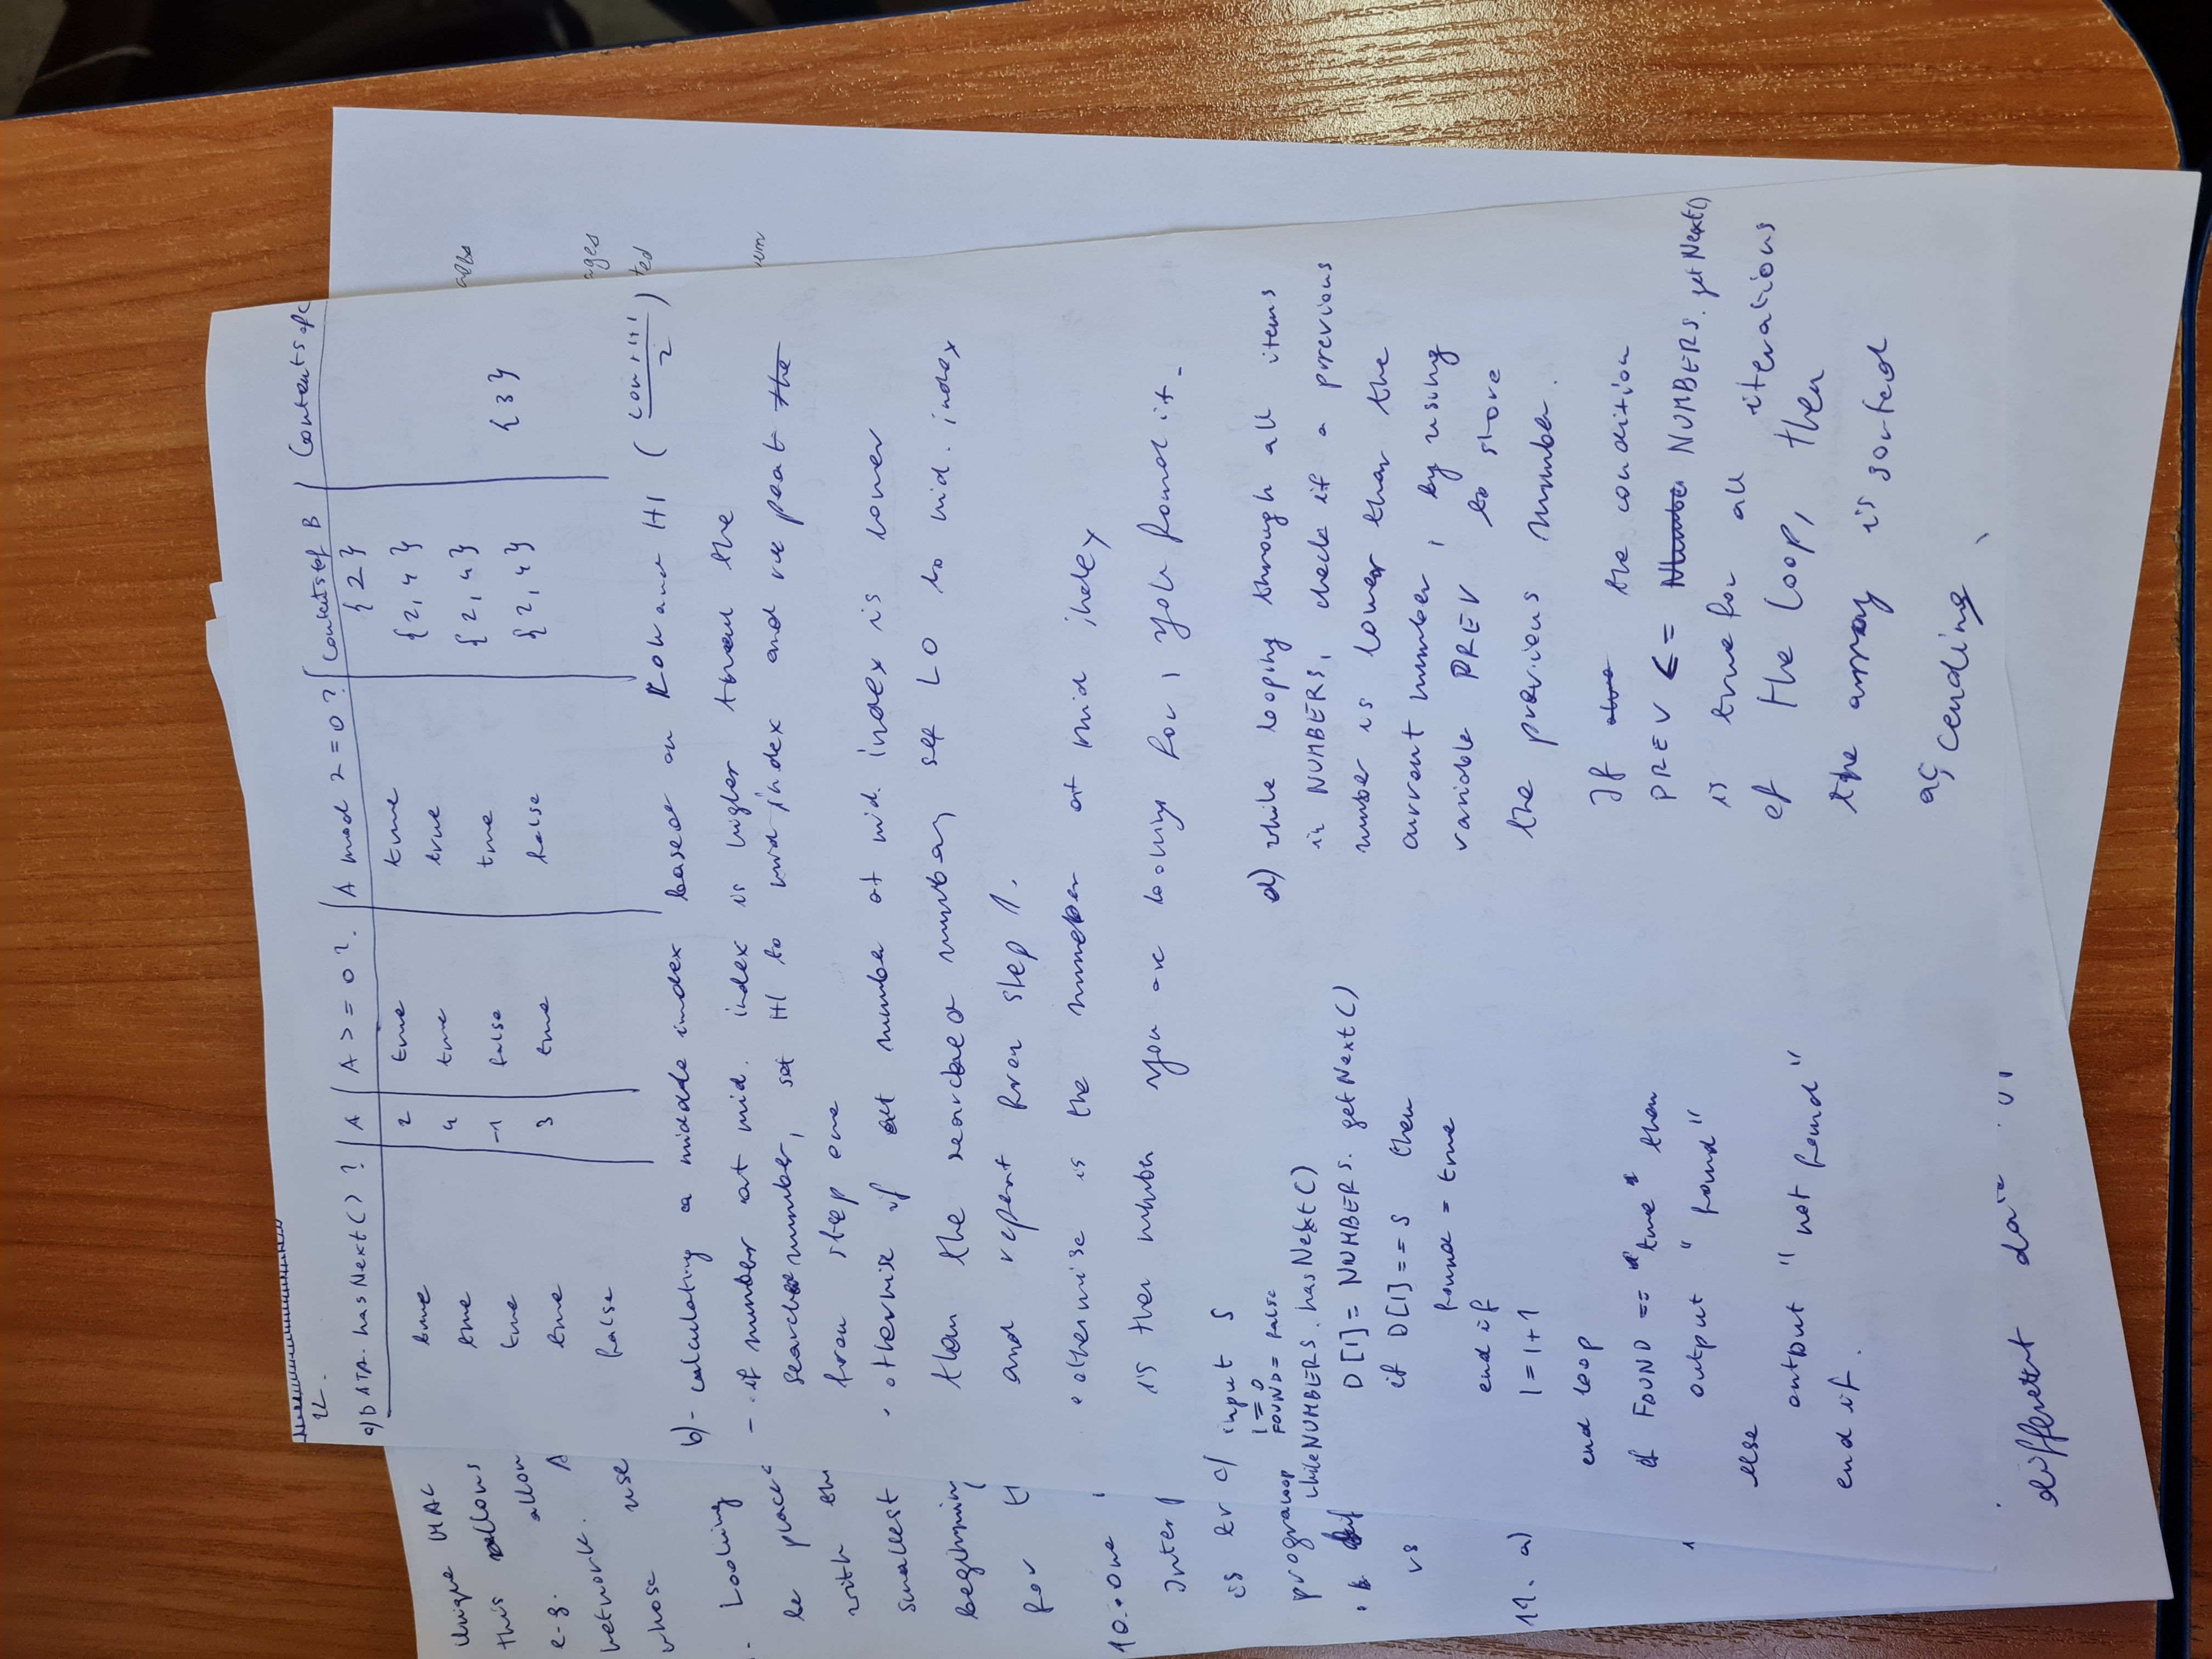 12.
a) DATA. hasNext() ? | A | A >= 0 ? | A mod 2 = 0 ? | Contents of B | Contents of C
true 2 true true {2}
true 4 true true {2, 4}
true -1 false true {2, 4}
true 3 true false {2, 4} {3}
false
b) - calculating a middle index based on LOW and HI ( LOW + HI / 2 )
- if number at mid. index is higher than the
searched number, set HI to mid index and repeat the
from step one
- otherwise if at number at mid. index is lower
than the searched number, set LO to mid. index
and repeat from step 1.
• otherwise is the number at mid index
is the number you are looking for, you found it.
c) input S
I = 0
FOUND = false
loop while NUMBERS. hasNext()
D[I] = NUMBERS. getNext()
if D[I] == S then
found = true
end if
I = I + 1
end loop
if FOUND == "true" then
output "found"
else
output "not found"
end if.
d) while looping through all items
in NUMBERS, check if a previous
number is lower than the
current number, by using
variable PREV to store
the previous number.
If the condition
PREV <= Number NUMBERS. getNext()
is true for all iterations
of the loop, then
the array is sorted
ascending
Unique MAC
this allows
e-g. allow
network. A
whose use
. Looking
be place
with the
smallest
beginning
for t
10. • One
Inter
is
progra
if
vs
11. a)
different
ages
ted